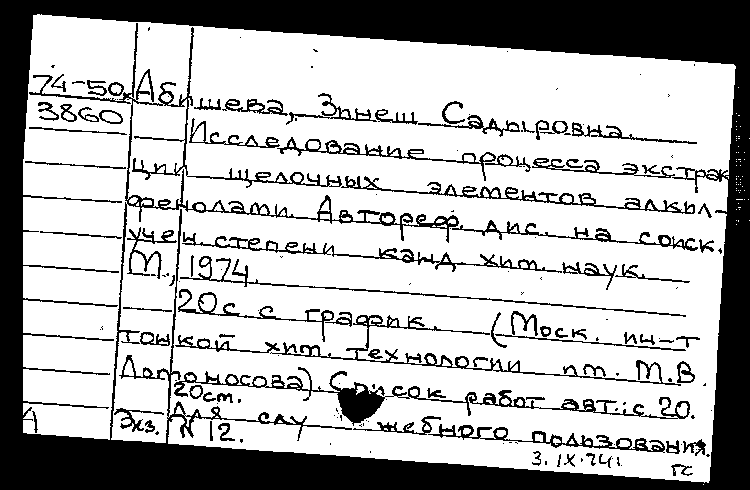 74-50x Абишева, Зинеш Садыровна.
3860
Исследование процесса экстрак
ции щелочных элементов алкил-
фенолами. Автореф. дис. на соиск.
учен. степени канд. хим. наук.
М., 1974.
20 с. с график. (Моск. ин-т
тонкой хим. технологии им. М.В.
Ломоносова). Список работ авт.: с. 20.
20см.
Для служебного пользования.
Экз. N 12.
3.IX.74г. ГС